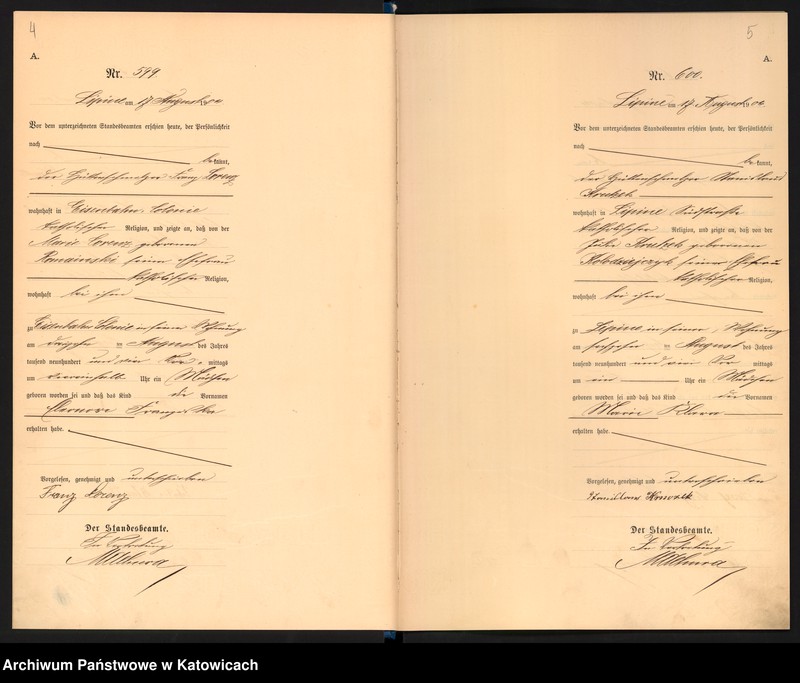 4
A.
Nr. 599.
Lipine am 17 August 19
Vor dem unterzeichneten Standesbeamten erschien heute, der Persönlichkeit
nach
be kannt,
der Hüttenschmelzer Franz Lorenz
wohnhaft in Eisenbahn Colonie
katholischer Religion, und zeigte an, daß von der
Marie Lorenz geborenen
seiner Ehefrau
katholischer Religion,
wohnhaft bei ihm
zu Eisenbahn Colonie in seiner Wohnung
am August des Jahres
tausend neunhundert und Vor mittags
um Uhr ein Mädchen
geboren worden sei und daß das Kind die Vornamen
Eleonore Franziska
erhalten habe.
Vorgelesen, genehmigt und unterschrieben
Franz Lorenz
Der Standesbeamte.
In Vertretung
5
A.
Nr. 600.
Lipine am 17 August 19
Vor dem unterzeichneten Standesbeamten erschien heute, der Persönlichkeit
nach
be kannt,
der Hüttenschmelzer Stanislaus
wohnhaft in Lipine Südstraße
katholischer Religion, und zeigte an, daß von der
geborenen
Kolodziejczyk seiner Ehefrau
katholischer Religion,
wohnhaft bei ihm
zu Lipine in seiner Wohnung
am sechzehn August des Jahres
tausend neunhundert und Vor mittags
um ein Uhr ein Mädchen
geboren worden sei und daß das Kind die Vornamen
Marie Klara
erhalten habe.
Vorgelesen, genehmigt und unterschrieben
Der Standesbeamte.
In Vertretung
Archiwum Państwowe w Katowicach